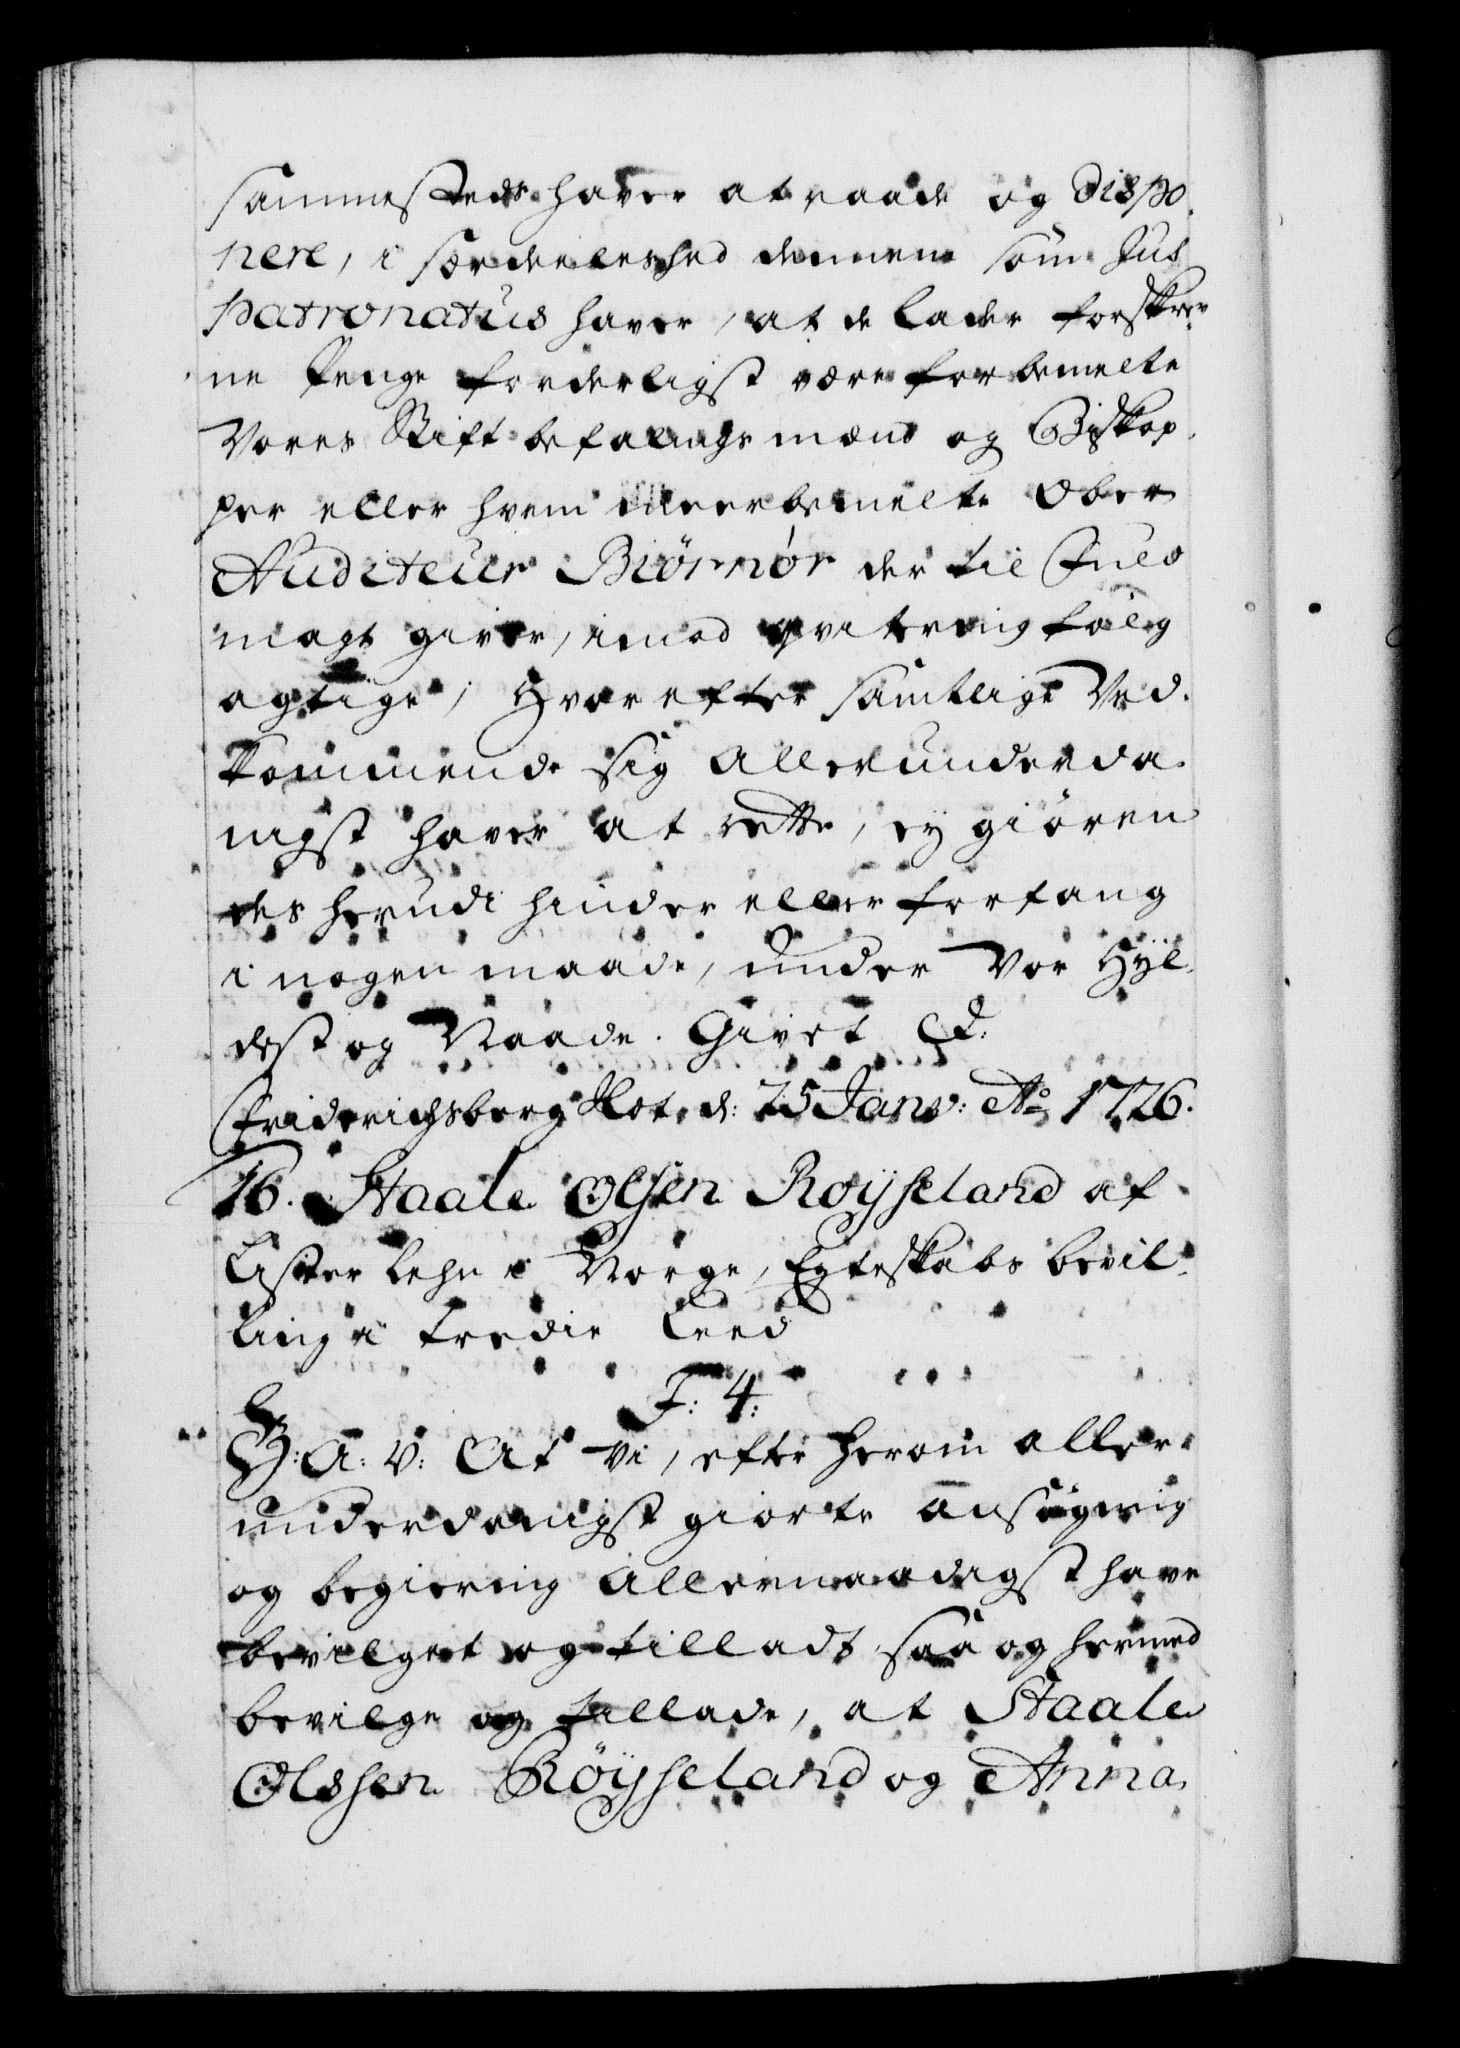 sammesteds haver at raade og dispo
nere, i særdeeleshed dennem som Jus
patronatus haver, at de lader forskrev
ne Penge forderligst være forbemelte
Vores Stift befalings mænd og Biskop
per eller hvem meerbemelte Ober
Auditeur Biørnør der til Fuld
magt giver, imod qvitering følg
agtige, Hvorefter samtlige Ved
kommende sig allerunderda
nigst haver at rette, ey giören
des herudi hinder eller forfang
i nogen maade, under Vor Hyl
dest og Naade. Givet &c:
Friderichsberg Slot, d: 25 Janv: Ao 1726.
16. Staale Olsen Roÿseland af
Lister Lehn i Norge, Egteskabs bevil
ling i tredie Leed
F: 4:
G: A: V: At Vi, efter herom aller
underdanigst giorte ansøgning
og begiering allernaadigst have
bevilget og tilladt, saa og hermed
bevilge og tillade, at Staale
Olssen Röÿseland og Anna